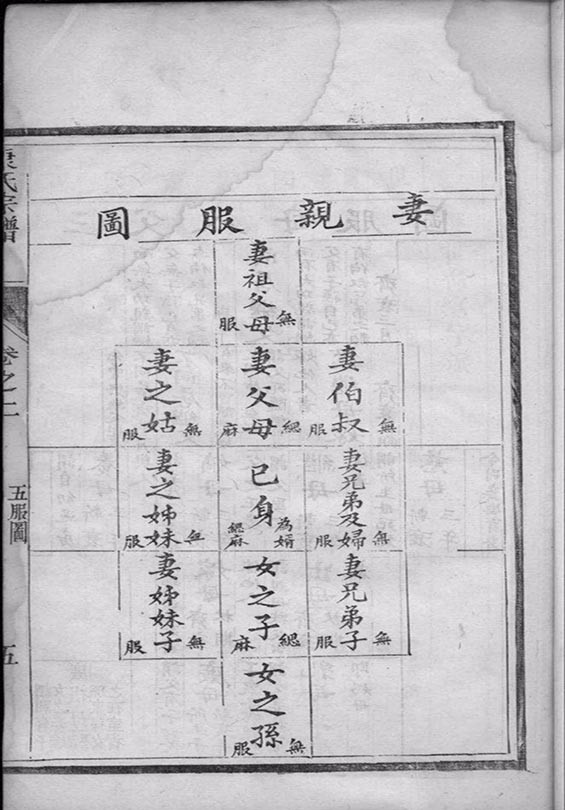 妻親服圖
妻祖父母
無服
妻伯叔
無服
妻父母
緦麻
妻之姑
無服
妻兄弟及婦
無服
己身
為婿
緦麻
妻之姊妹
無服
妻兄弟子
無服
女之子
緦麻
妻姊妹子
無服
女之孫
無服
氏宗譜
卷之二
五服圖
五